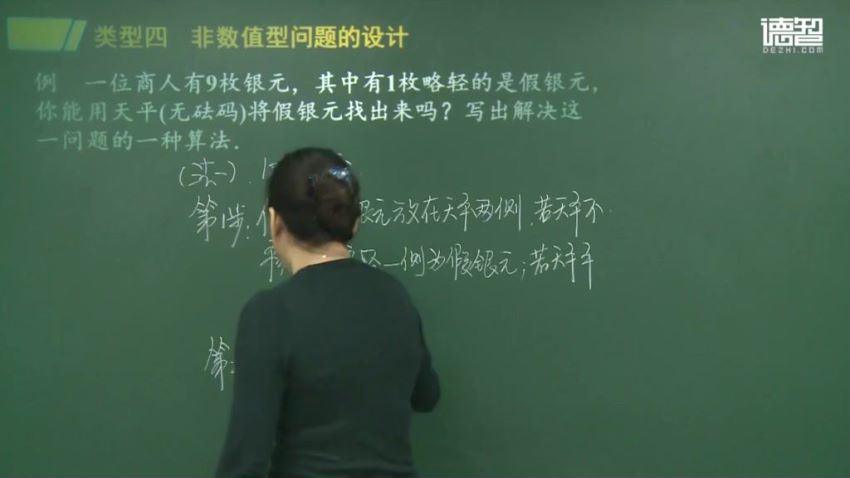 类型四 非数值型问题的设计
德智
DEZHI.COM
例 一位商人有9枚银元，其中有1枚略轻的是假银元，
你能用天平(无砝码)将假银元找出来吗？写出解决这
一问题的一种算法.
(法一).
第1步: 银元放在天平两侧.若天平不
一侧为假银元;若天平平
第